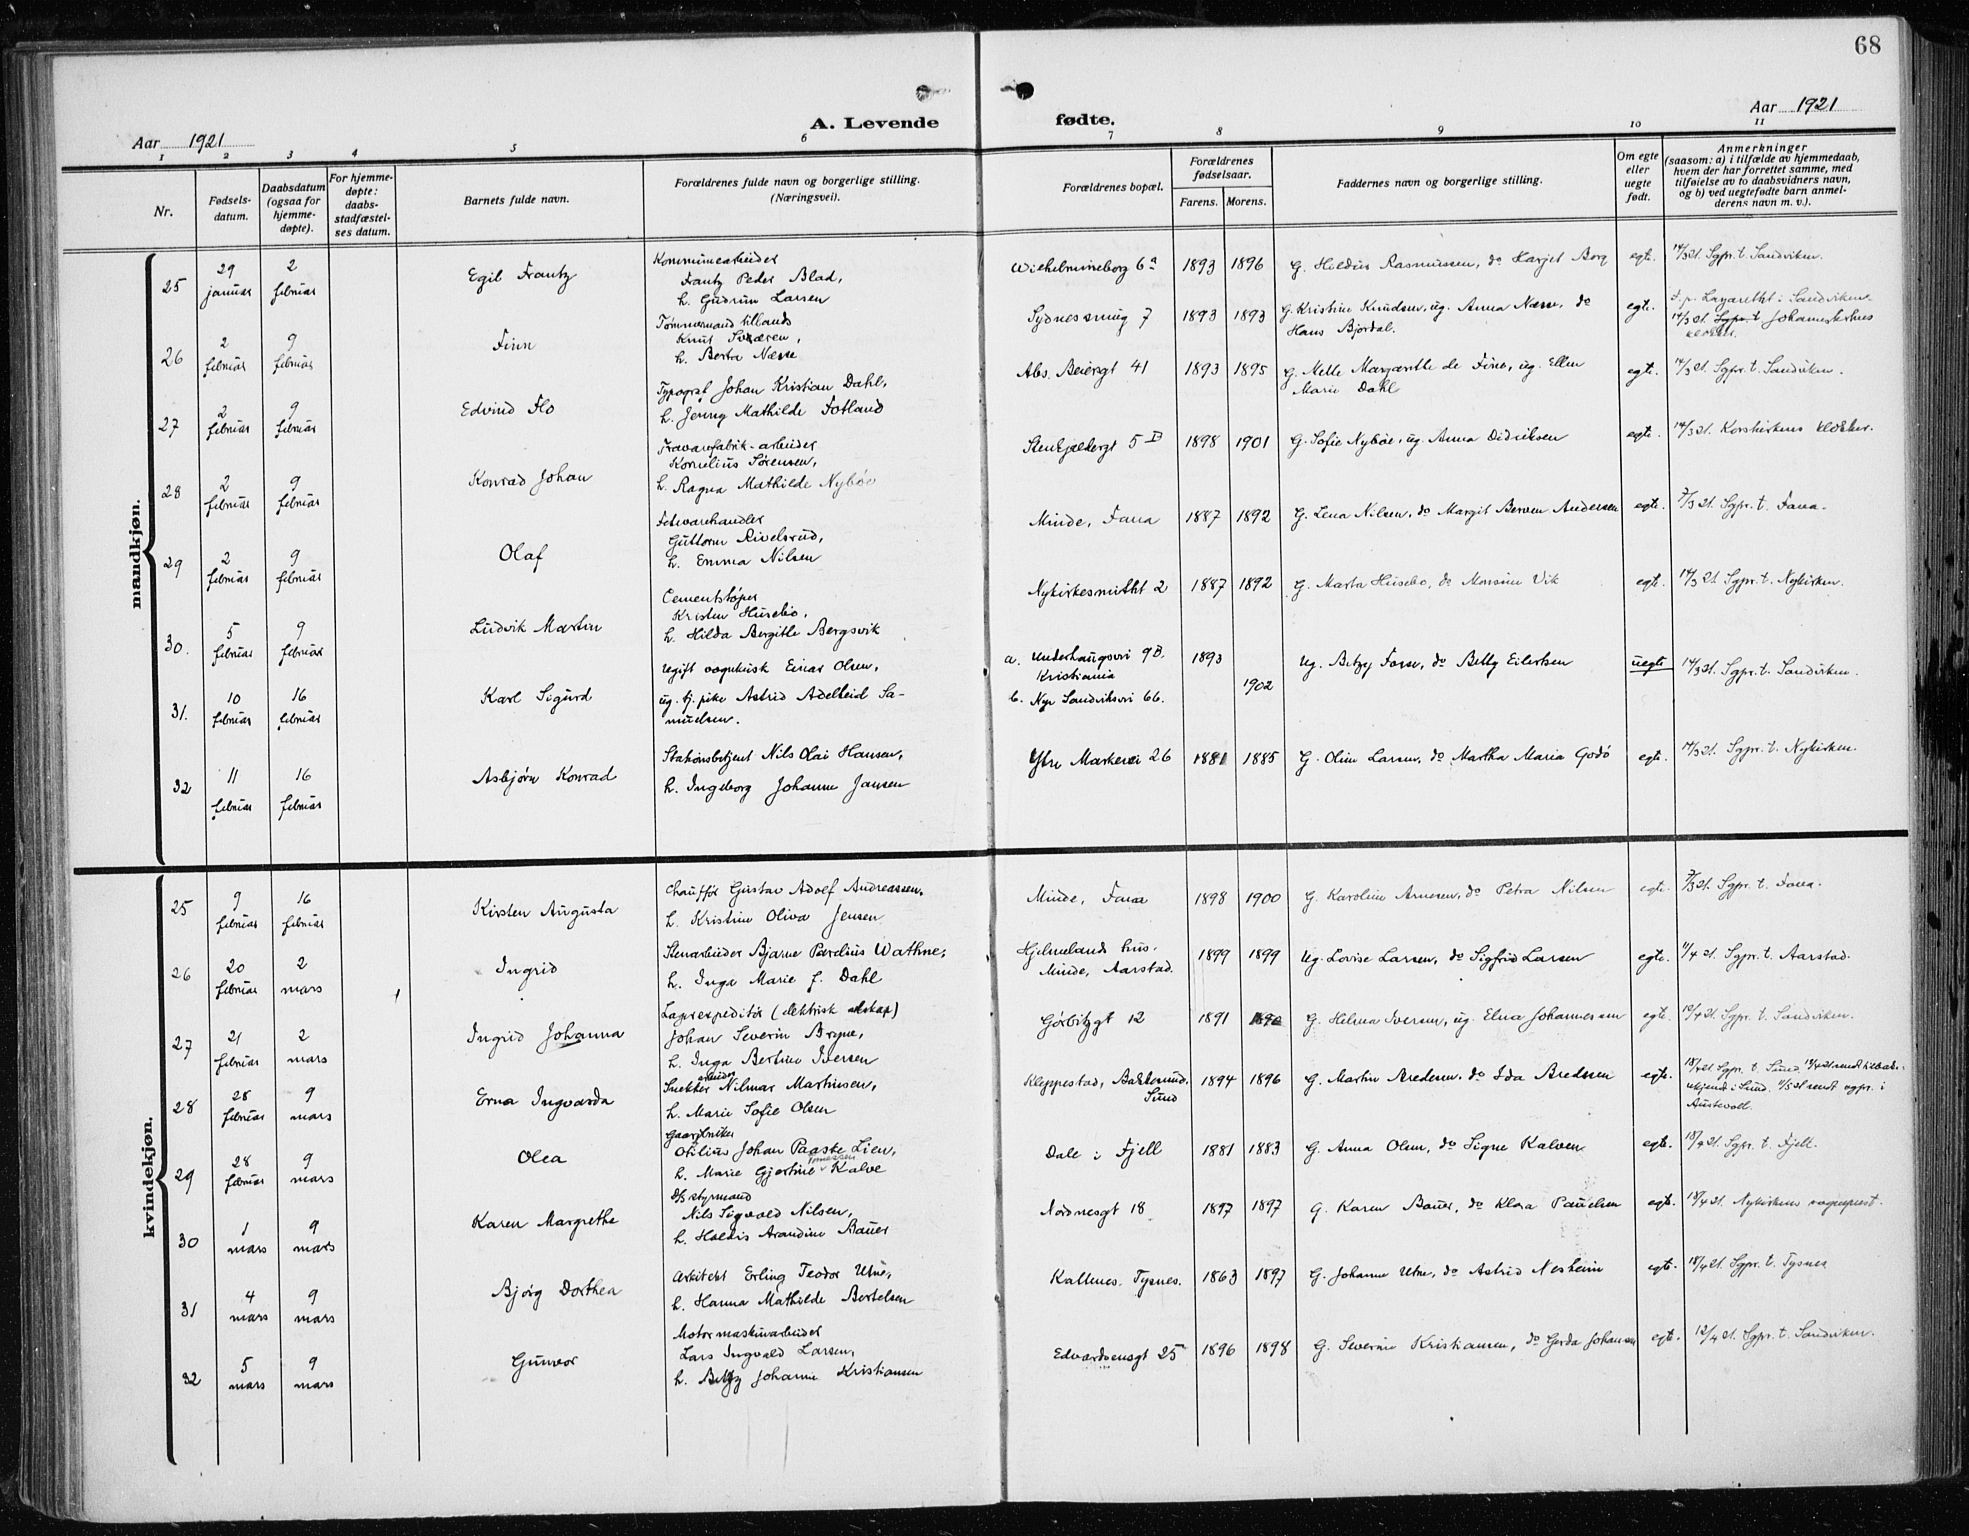 68
Aar 1921
A. Levende
fødte.
Aar 1921
1 2 3 4 5 6 7 8 9 10 11
Nr.
Fødsels-
datum.
Daabsdatum
(ogsaa for
hjemme-
døpte).
For hjemme-
døpte:
daabs-
stadfæstel-
ses datum.
Barnets fulde navn.
Forældrenes fulde navn og borgerlige stilling.
(Næringsvei).
Forældrenes bopæl.
Forældrenes
fødselsaar.
Farens. Morens.
Faddernes navn og borgerlige stilling.
Om egte
eller
uegte
født.
Anmerkninger
(saasom: a) i tilfælde av hjemmedaab,
hvem der har forrettet samme, med
tilføielse av to daabsvidners navn,
og b) ved uegtefødte barn anmel-
derens navn m. v.).
mandkjøn.
25
29
januar
2
februar
Egil Frantz
Kommunearbeider
Frantz Peder Blad,
h. Gudrun Larsen
Wilhelmineborg 6a 1893 1896
G. Heldur Rasmussen, do Harjet Borg
egte.
14/3 21. Sgpr. t. Sandviken.
26
2
februar
9
februar
Finn
Tømmermand tillands
Knut Sværen,
h. Berta Næsse
Sydnessmug 7 1893 1893
G. Kristine Knudsen, ug. Anna Næsse, do
Hans Bjordal.
egte.
F. p. Lazarettet i Sandviken.
14/3 21. Sgpr. t Johanneskirkens
klokker.
27
2
februar
9
februar
Edvind Flo
Typograf Johan Kristian Dahl,
h. Jenny Mathilde Fotland
Abs. Beiergt 41 1893 1895
G. Mette Margrethe de Fine, ug. Ellen
Marie Dahl
egte.
14/3 21. Sgpr. t. Sandviken.
28
2
februar
9
februar
Konrad Johan
Travarefabrik-arbeider
Kornelius Sørensen,
h. Ragna Mathilde Nybøe
Stenkjeldergt 5 B 1898 1901
G. Sofie Nybøe, ug. Anna Didriksen
egte.
14/3 21. Korskirkens klokker.
29
2
februar
9
februar
Olaf
Fetevarehandler
Guttorm Rivelsrud,
h. Emma Nilsen
Minde, Fana 1887 1892
G. Lena Nilsen, do Margit Berven Andersen
egte.
7/3 21. Sgpr. t. Fana.
30.
5
februar
9
februar
Ludvik Martin
Cementstøper
Kristen Husebø,
h. Hilda Bergitte Bergsvik
Nykirkesmuthet 2 1887 1892
G. Marta Husebo, do Monsine Vik
egte.
14/3 21. Sgpr. t. Nykirken.
31.
10
februar
16
februar
Karl Sigurd
Ugift vognkusk Einar Olsen,
ug. tj. pike Astrid Adelheid Sa-
muelsen.
a. Underhaugsvei 9B.
Kristiania
b. Nye Sandviksvei 66.
1893
1902
Ug. Betzy Fosse, do Betty Eilertsen
uegte
14/3 21. Sgpr. t. Sandviken.
32
11
februar
16
februar
Asbjørn Konrad
Stationsbetjent Nils Olai Hansen,
h. Ingeborg Johanne Jansen
Ytre Markevei 26 1881 1885
G. Oline Larsen, do Martha Maria Godö
egte.
14/3 21. Sgpr. t. Nykirken.
kvindekjøn.
25
9
februar
16
februar
Kirsten Augusta
Chauffør Gustav Adolf Andreassen,
h. Kristine Oliva Jensen
Minde, Fana 1898 1900
G. Karoline Arnesen, do Petra Nilsen
egte.
7/3 21. Sgpr. t. Fana.
26
20
februar
2
mars
Ingrid
Stenarbeider Bjarne Parelius Wathne,
h. Inga Marie f. Dahl
Hjelmelands hus.
Minde, Aarstad. 1899 1899
Ug. Lovise Larsen, do Sigfrid Larsen
egte.
1/4 21. Sgpr. t. Aarstad.
27
21
februar
2
mars
Ingrid Johanna
Lagerexpeditør (elektrisk selskap)
Johan Severin Bryne,
h. Inga Bertine Iversen
Görbitzgt 12 1891 1890
G. Helma Iversen, ug. Elna Johannessen
egte.
19/4 21. Sgpr. t. Sandviken.
28
28
februar
9
mars
Erna Ingvarda
Snekkerarbeider Nilmar Martinsen,
h. Marie Sofie Olsen
Kleppestad,
Sund 1894 1896
G. Martin Aredesen, do Ida Bredesen
egte.
18/4 21 Sgpr. t. Sund.
ukjend i Sund. 11/5 21 sendt sgpr. i
Austevoll.
29
28
februar
9
mars
Olea
Gaardbruker
Otilius Johan Paaske Lien,
h. Marie Gjertine Tomessen Kalve
Dale i Fjell 1881 1883
G. Anna Olsen, do Signe Kalven
egte.
18/4 21. Sgpr. t. Fjell.
30
1
mars
9
mars
Karen Margrethe
D/S styrmand
Nils Sigvald Nilsen,
h. Haldis Arandine Bauer
Nordnesgt 18 1897 1897
G. Karen Bauer, do Klara Paulsen
egte.
18/4 21. Nykirkens sogneprest.
31
4
mars
9
mars
Bjørg Dorthea
Arkitekt Erling Teodor Utne,
h. Hanna Mathilde Bertelsen
Kallenes. Tysnes. 1863 1897
G. Johanne Utne, do Astrid Nesheim
egte.
18/4 21. Sgpr. t. Tysnes
32
5
mars
9
mars
Gunvor
Motormaskinarbeider
Lars Ingvald Larsen,
h. Betzy Johanne Kristiansen
Edvardsensgt 25 1896 1898
G. Severine Kristiansen, do Gerda Johansen
egte.
12/4 21. Sgpr. t. Sandviken.